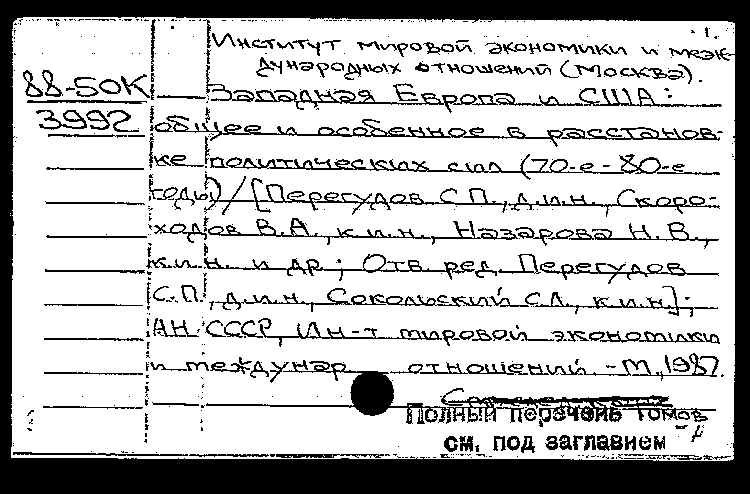 1.
Институт мировой экономики и меж-
дународных отношений (Москва).
88-50К Западная Европа и США:
3992 общее и особенное в расстанов-
ке политических сил (70-е - 80-е
годы) / [Перегудов С.П., д.и.н., Скоро-
ходов В.А., к.и.н., Назарова Н.В.,
к.и.н. и др.; Отв. ред. Перегудов
С.П., д.и.н., Сокольский С.Л., к.и.н.];
АН СССР, Ин-т мировой экономики
и междунар отношений. - М., 1987.
Полный перечень томов
см. под заглавием